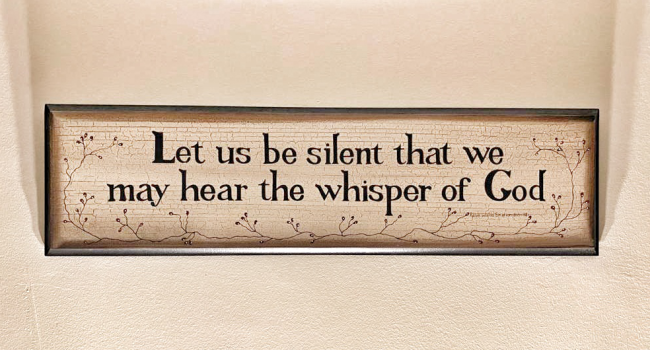 Let us be silent that we
may hear the whisper of God